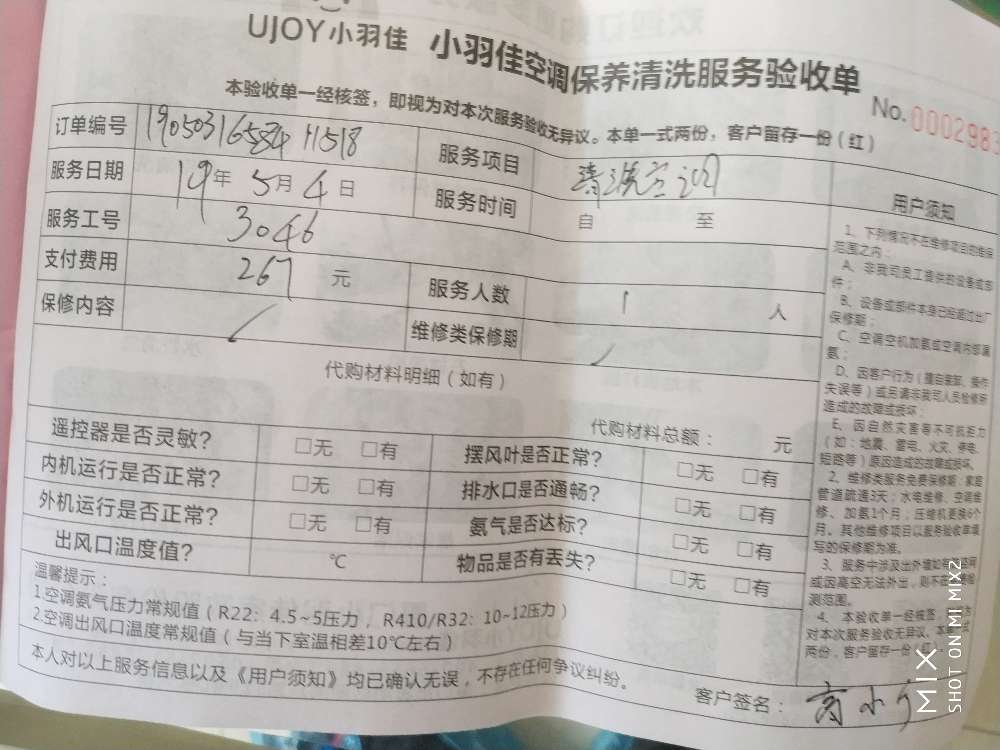 UJOY小羽佳 小羽佳空调保养清洗服务验收单
本验收单一经核签，即视为对本次服务验收无异议。本单一式两份，客户留存一份（红）
No.0002983
订单编号 服务项目 清洗空调
服务日期 19年5月4日 服务时间 自 至
服务工号 3046
支付费用 267 元 服务人数 1 人
保修内容 维修类保修期
代购材料明细（如有）
代购材料总额： 元
遥控器是否灵敏? □无 □有 摆风叶是否正常? □无 □有
内机运行是否正常? □无 □有 排水口是否通畅? □无 □有
外机运行是否正常? □无 □有 氨气是否达标? □无 □有
出风口温度值? ℃ 物品是否有丢失? □无 □有
温馨提示：
1.空调氨气压力常规值（R22：4.5~5压力，R410/R32：10~12压力）
2.空调出风口温度常规值（与当下室温相差10℃左右）
本人对以上服务信息以及《用户须知》均已确认无误，不存在任何争议纠纷。
客户签名：
用户须知
1、下列情况不在维修项目的维保
范围之内：
A、非我司员工提供的设备或部
件；
B、设备或部件本身已经超过出厂
保修期；
C、空调空机加氨或空调内部漏
氨；
D、因客户行为（擅自拆卸、操作
失误等）或另请非我司人员检修所
造成的故障或损坏；
E、因自然灾害等不可抗拒力
（如：地震、雷电、火灾、停电、
短路等）原因造成的故障或损坏。
2、维修类服务免费保修期：家庭
管道疏通3天；水电维修、空调维
修、加氨1个月；压缩机更换6个
月。其他维修项目以服务验收单填
写的保修期为准。
3、服务中涉及出外墙如
或因高空无法外出，则不在
测范围。
4、本验收单一经核签
对本次服务验收无异议。本
两份，客户留存一份
MIX
SHOT ON MI MIX2